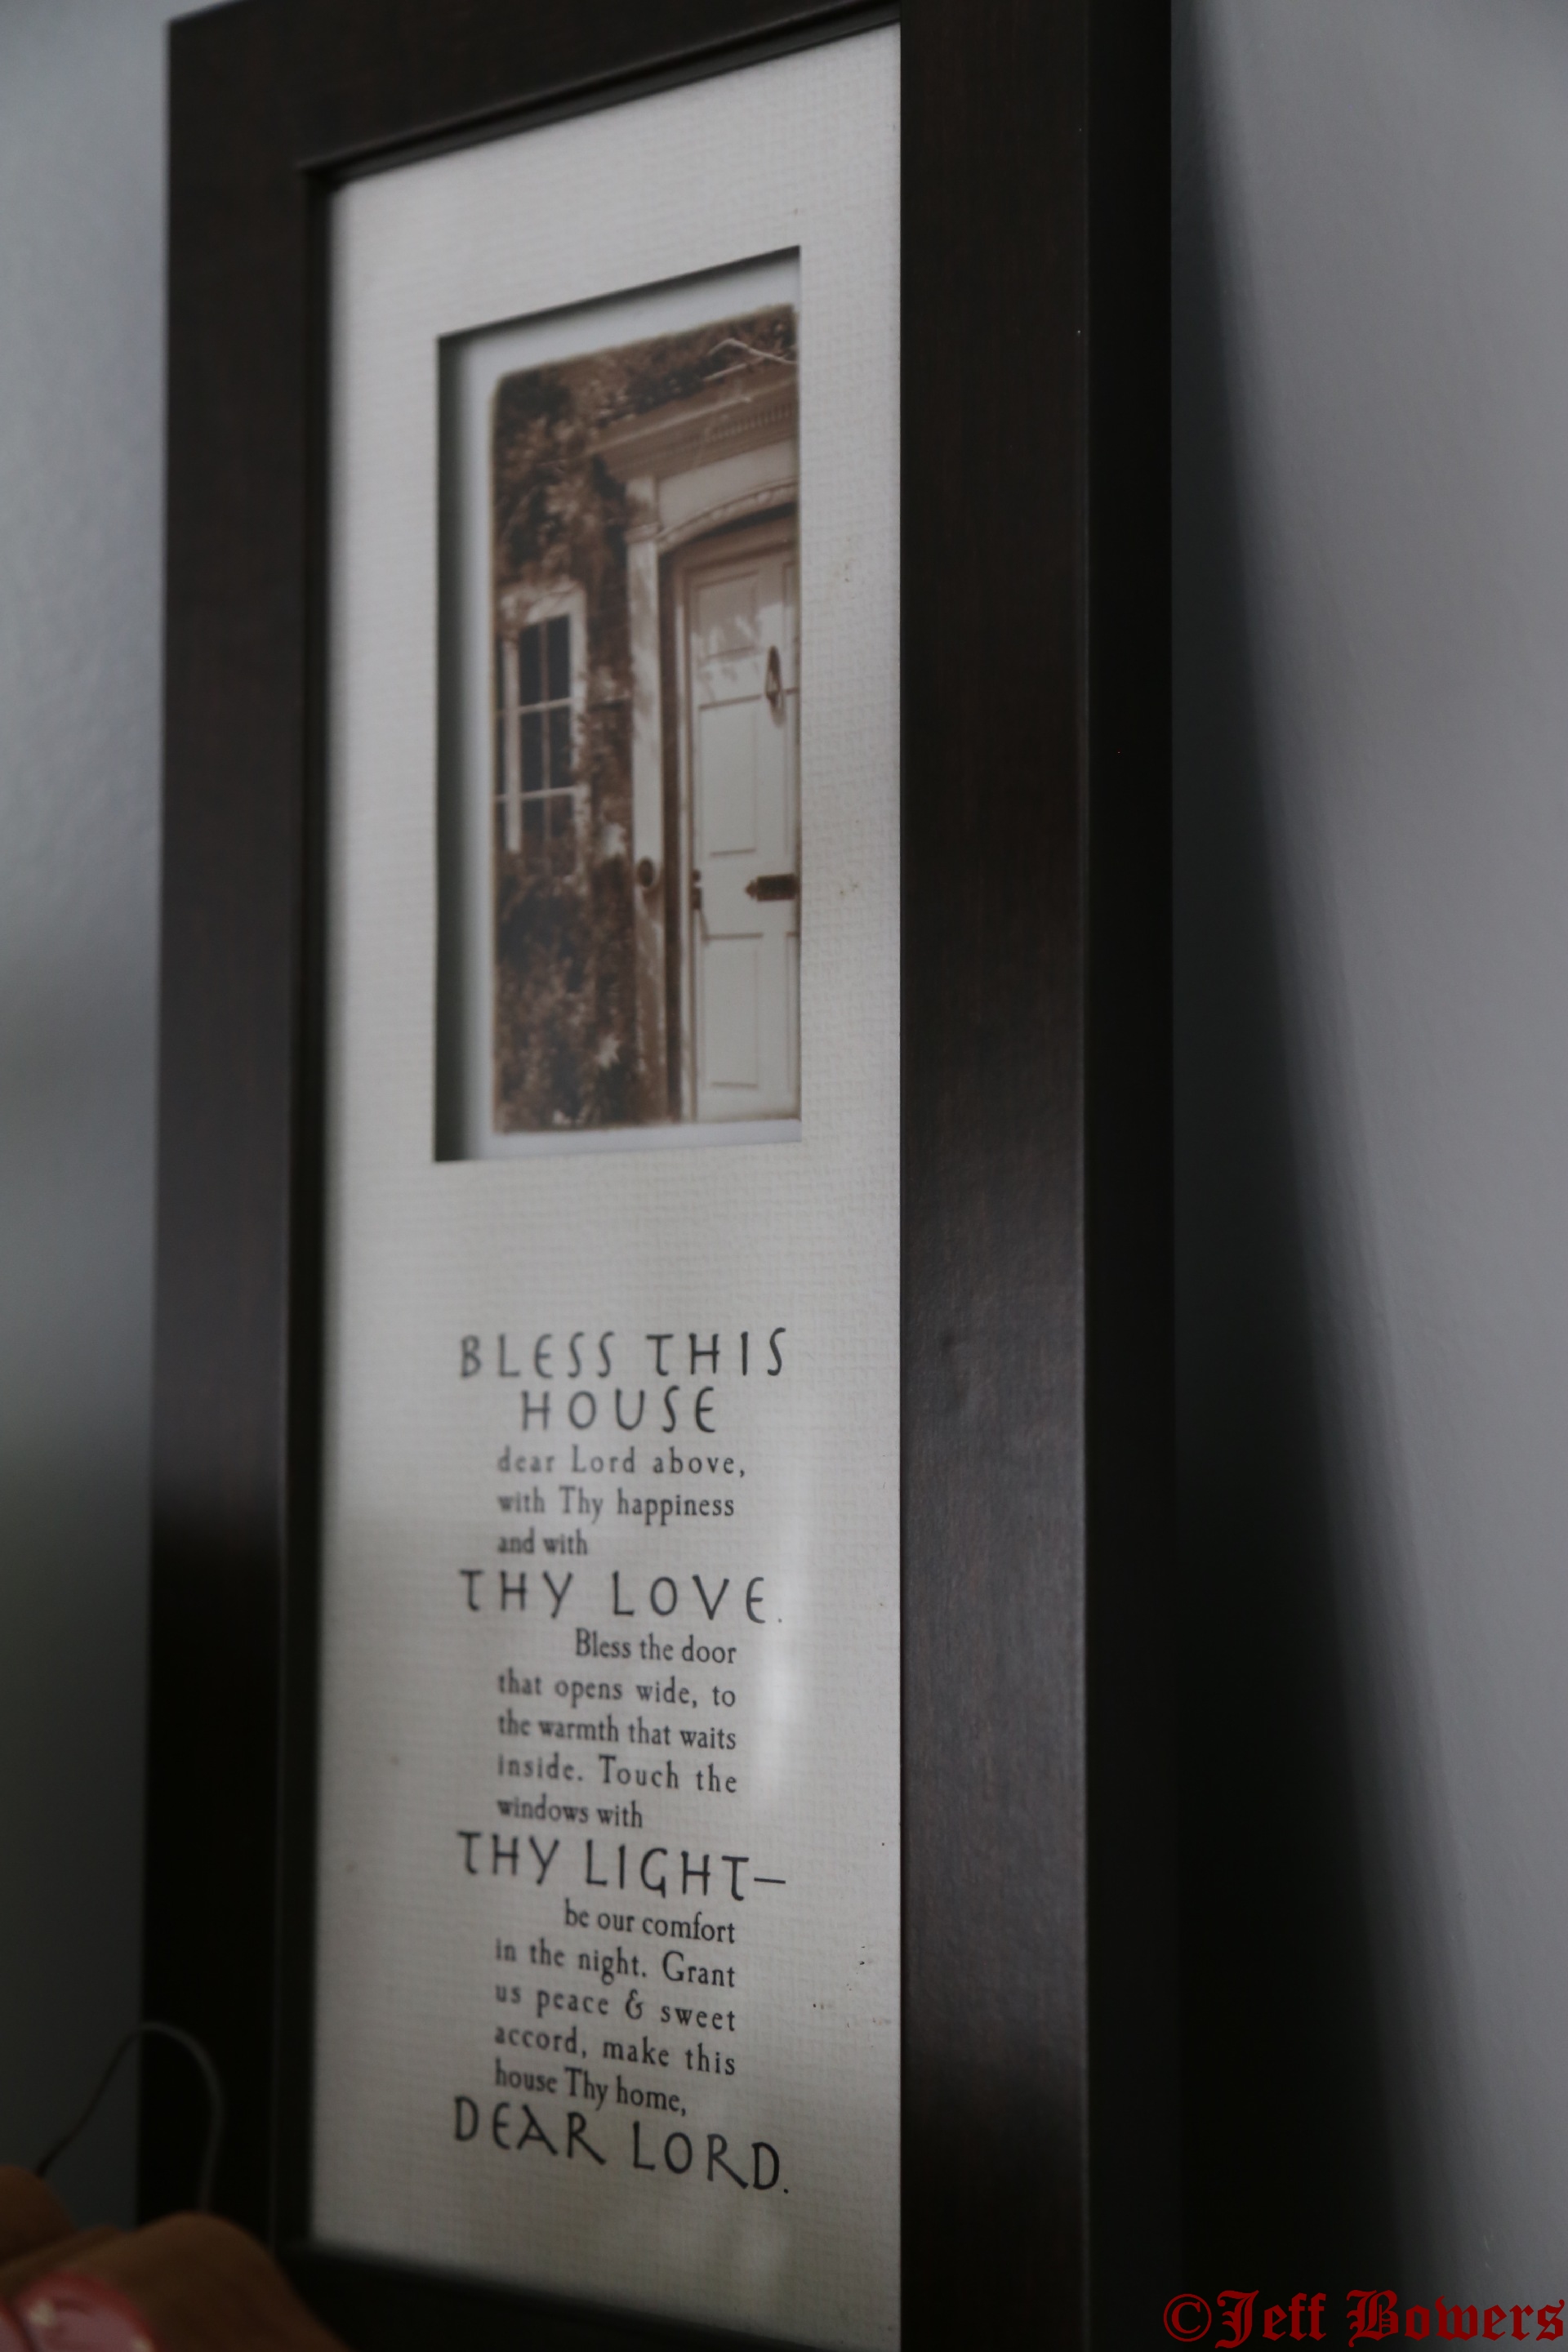 BLESS THIS
HOUSE
dear Lord above,
with Thy happiness
and with
THY LOVE.
Bless the door
that opens wide, to
the warmth that waits
inside. Touch the
windows with
THY LIGHT—
be our comfort
in the night. Grant
us peace & sweet
accord, make this
house Thy home,
DEAR LORD.
©Jeff Bowers